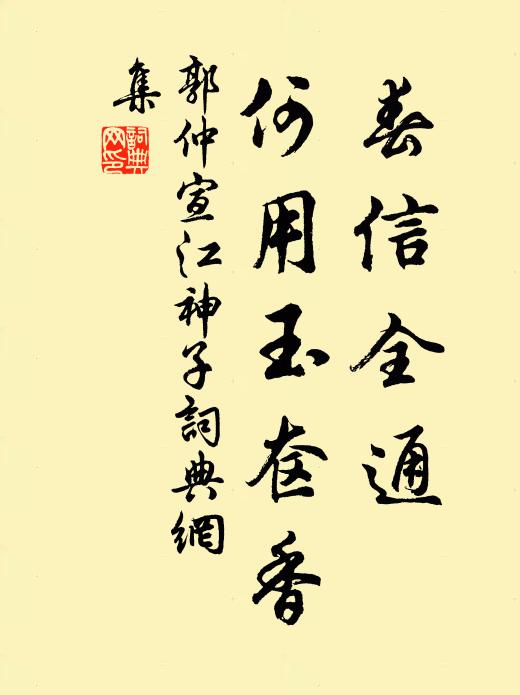 春信全通
何用玉奁香
郭仲宣江神子詞典網
集
詞典
网印